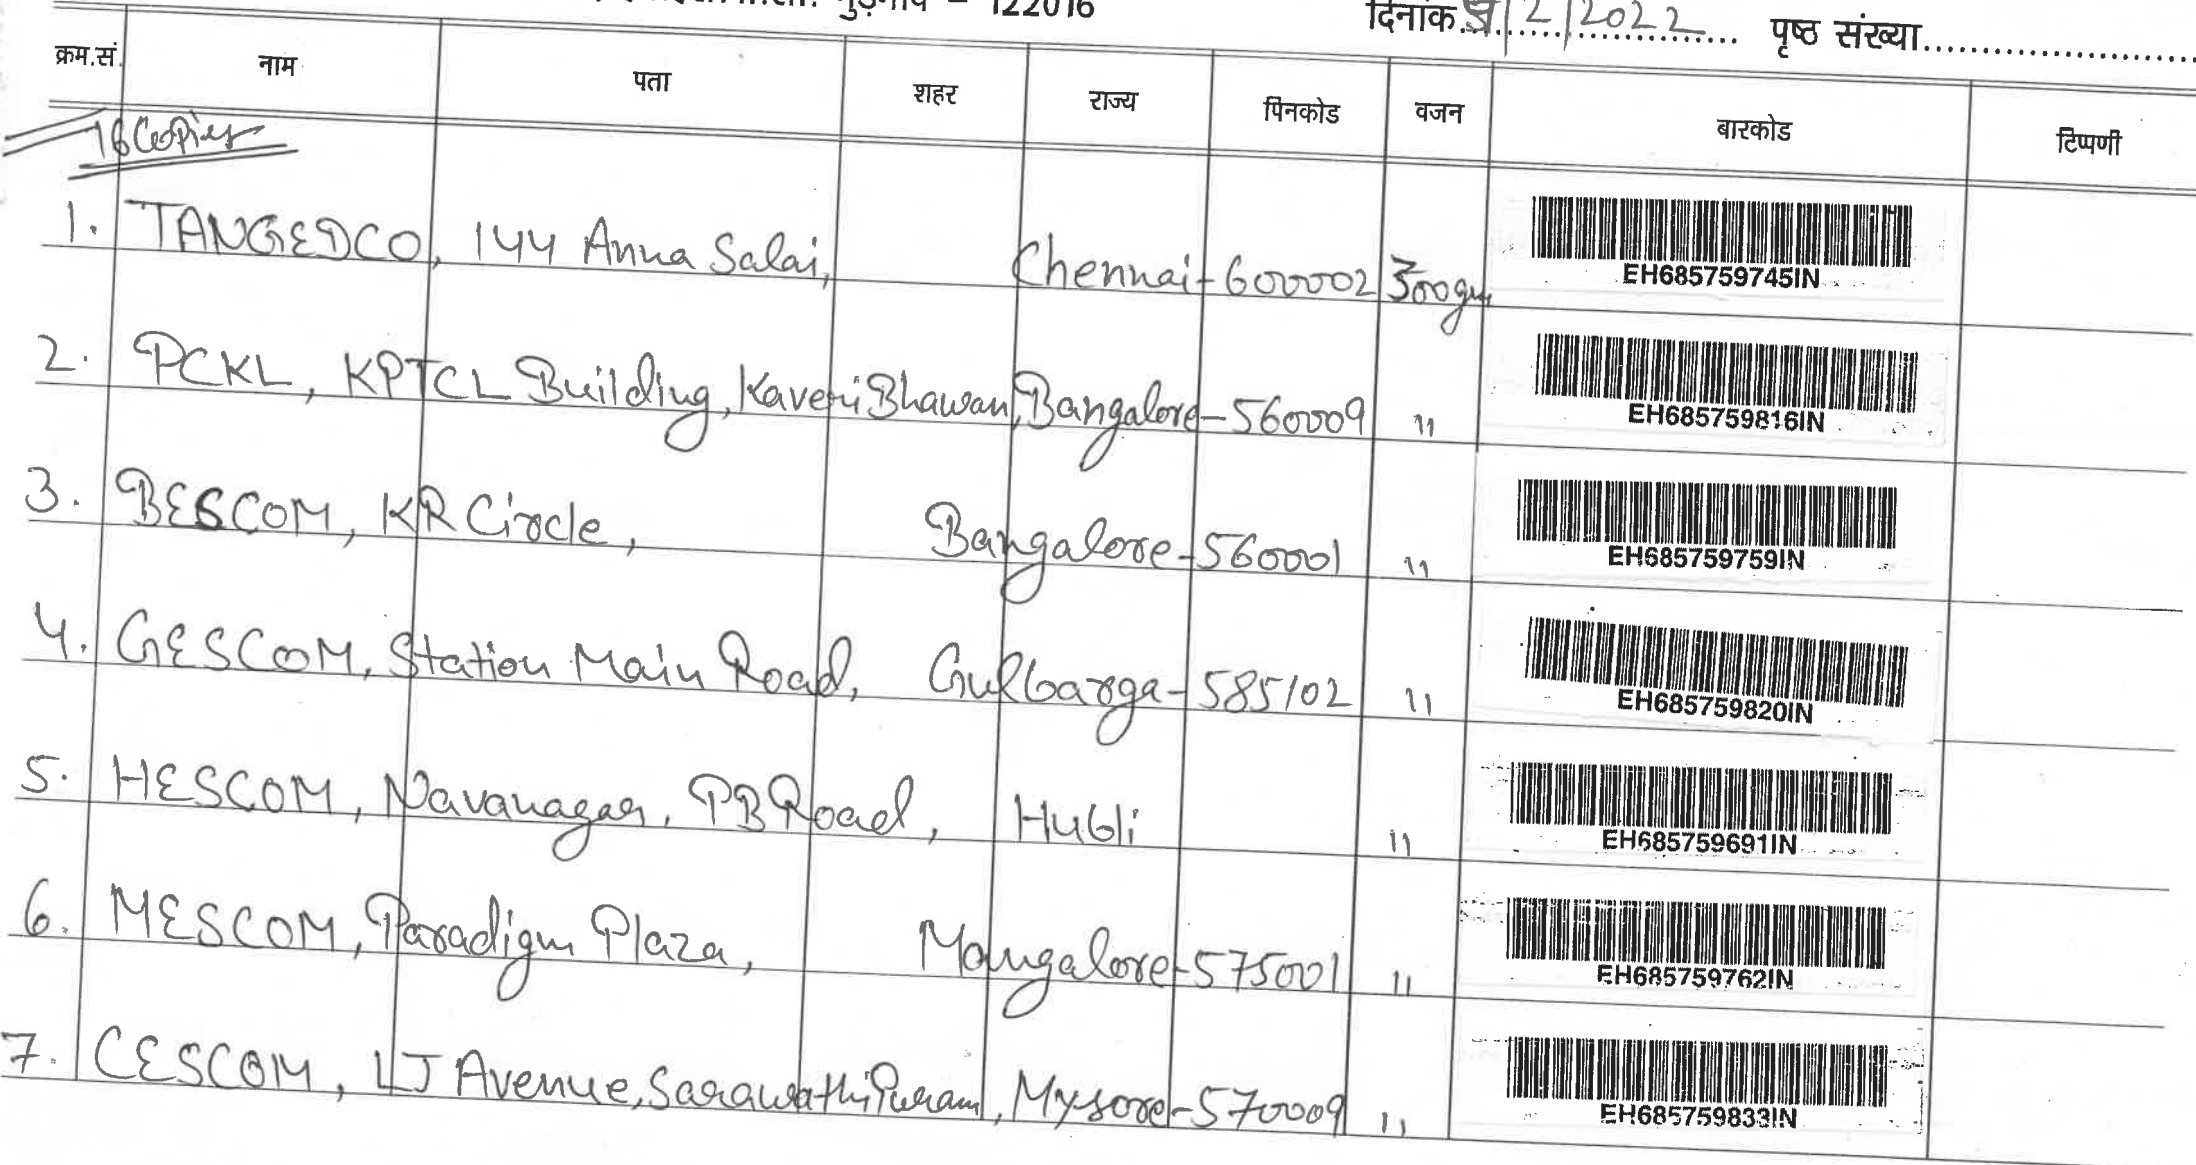 गुड़गाँव – 122016
दिनांक 9/2/2022 पृष्ठ संख्या
क्रम.सं. नाम पता शहर राज्य पिनकोड वजन बारकोड टिप्पणी
16 Copies
1. TANGEDCO, 144 Anna Salai, Chennai-600002 300gm EH685759745IN
2. PCKL, KPTCL Building, Kaveri Bhawan, Bangalore-560009 " EH685759816IN
3. BESCOM, KR Circle, Bangalore-560001 " EH685759759IN
4. GESCOM, Station Main Road, Gulbarga-585102 " EH685759820IN
5. HESCOM, Navanagar, PB Road, Hubli " EH685759691IN
6. MESCOM, Paradigm Plaza, Mangalore-575001 " EH685759762IN
7. CESCOM, LJ Avenue, SarawathiPuram, Mysore-570009 " EH685759833IN